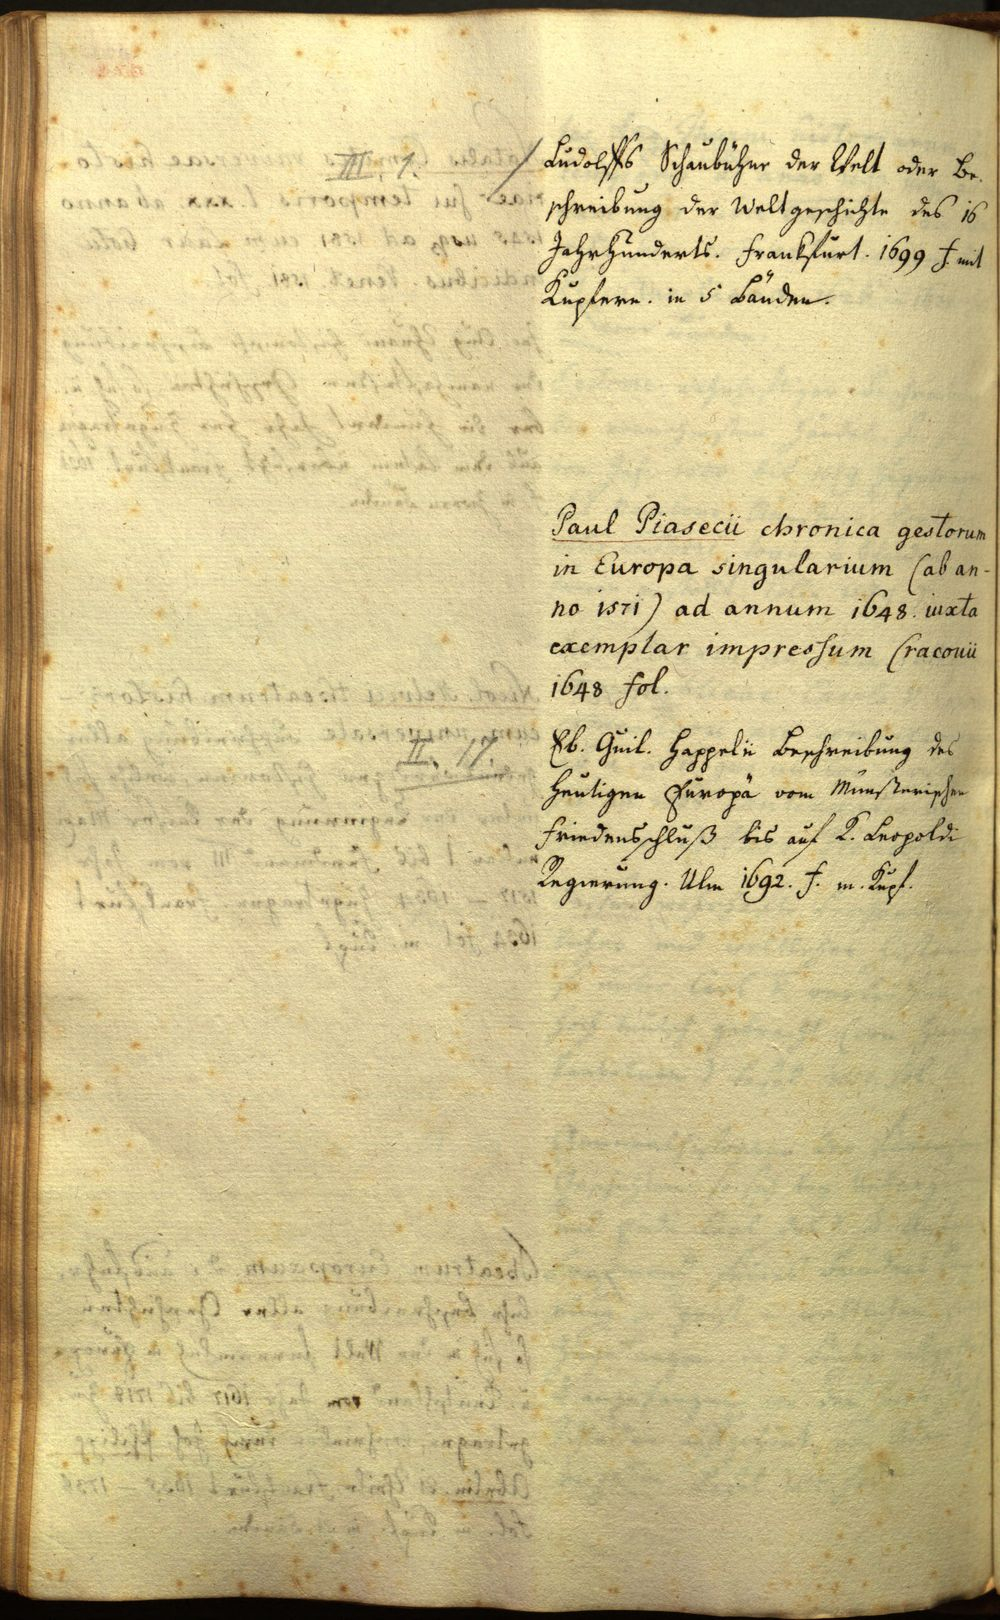 III, 1.
Ludolffs Schaubühne der Welt oder Be-
schreibung der Weltgeschichte des 16
Jahrhunderts. Frankfurt. 1699 f. mit
Kupfern. in 5 Bänden.
Paul Piasecii chronica gestorum
in Europa singularium (ab an-
no 1571) ad annum 1648. iuxta
exemplar impressum Cracouii
1648 fol.
II. 17.
Eb. Guil. Happelii Beschreibung des
heutigen Europä vom Münsterischen
Friedensschluß bis auf K. Leopoldi
Regierung. Ulm 1692. f. m. Kupf.